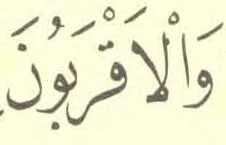 وَالْاَقْرَبُونَ